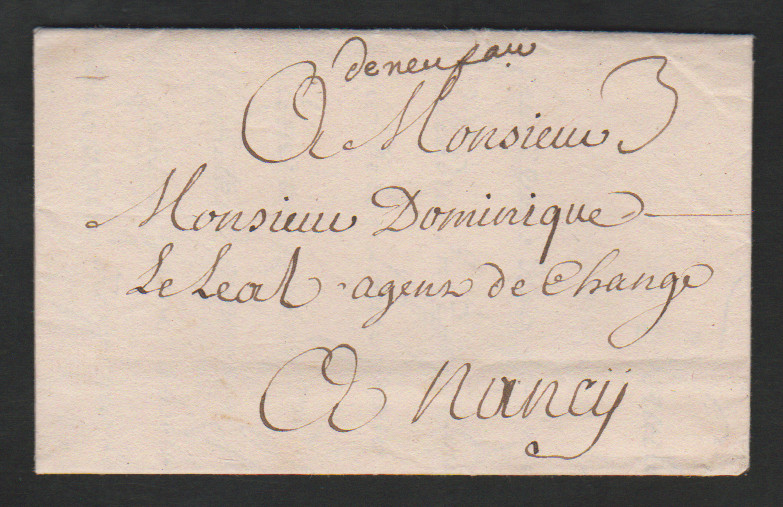 de neufau
A Monsieur 3
Monsieur Dominique
Le Leal agent de Change
A nancÿ